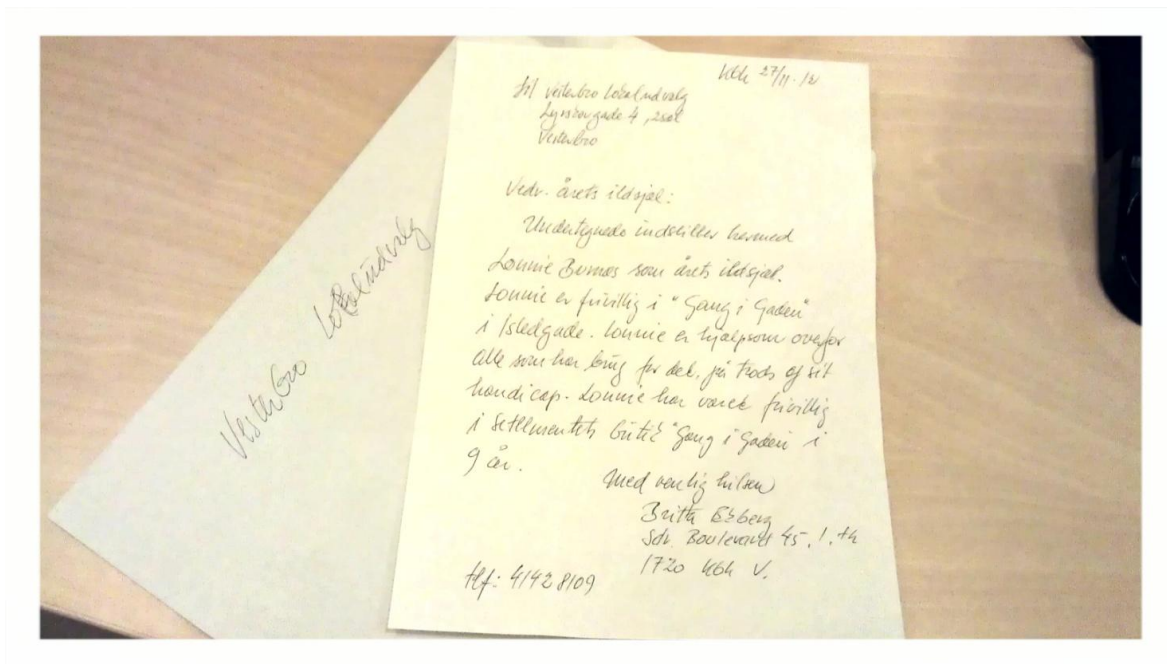 Kbh 27/11-12
Til Vesterbro Lokaludvalg
Lyrskovgade 4, 2 sal
Vesterbro
Vedr. årets ildsjæl:
Undertegnede indstiller hermed
Lonnie som årets ildsjæl.
Lonnie er frivillig i "Gang i Gaden"
i Istedgade. Lonnie er hjælpsom overfor
alle som har brug for det, på trods af sit
handicap. Lonnie har været frivillig
i Settlementets butik "Gang i Gaden" i
9 år.
Med venlig hilsen
Britta
Sdr. Boulevard 45, 1. th
1720 Kbh V.
tlf: 41428109
Vesterbro Lokaludvalg